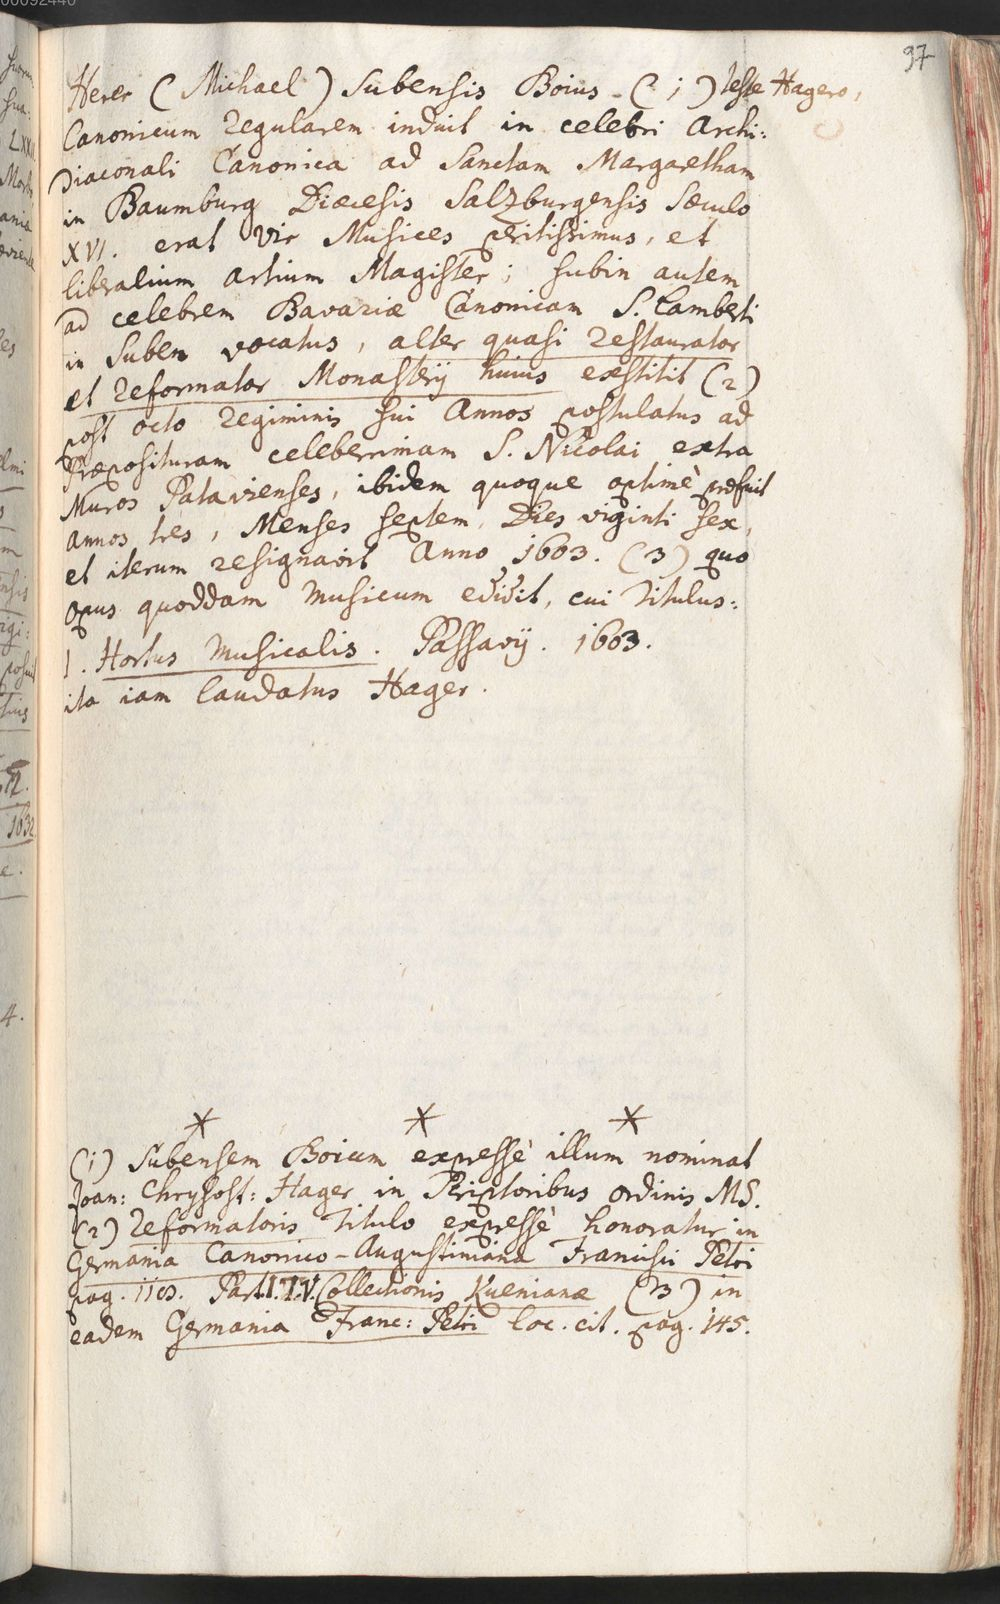 97
Herer (Michael) Subensis Boius (1) teste Hagero,
Canonicum Regularem induit in celebri Archi:
Diaconali Canonica ad Sanctam Margaretham
in Baumburg Diœcesis Salzburgensis Sæculo
XVI. erat vir Musices peritissimus, et
liberalium artium Magister; subin autem
ad celebrem Bavariæ Canonicam S. Lamberti
in Suben vocatus, alter quasi restaurator
et reformator Monasterij huius exstitit (2)
post octo regiminis sui Annos postulatus ad
Præposituram celeberrimam S. Nicolai extra
Muros Patavienses, ibidem quoque optimè præfuit
annos tres, Menses septem, Dies viginti sex,
et iterum resignavit Anno 1603. (3) quo
opus quoddam musicum edidit, cui titulus:
1. Hortus Musicalis. Passavij. 1603.
ita iam laudatus Hager.
(1) Subensem Boicum expressè illum nominat
Joan: Chrysost: Hager in Scriptoribus ordinis MS.
(2) Reformatoris titulo expressè honoratur in
Germania Canonico-Augustiniana Francisci Petri
pag. 1103. Part. I. T. V. Collectionis Kuenianæ (3) in
eadem Germania Franc: Petri loc. cit. pag. 145.